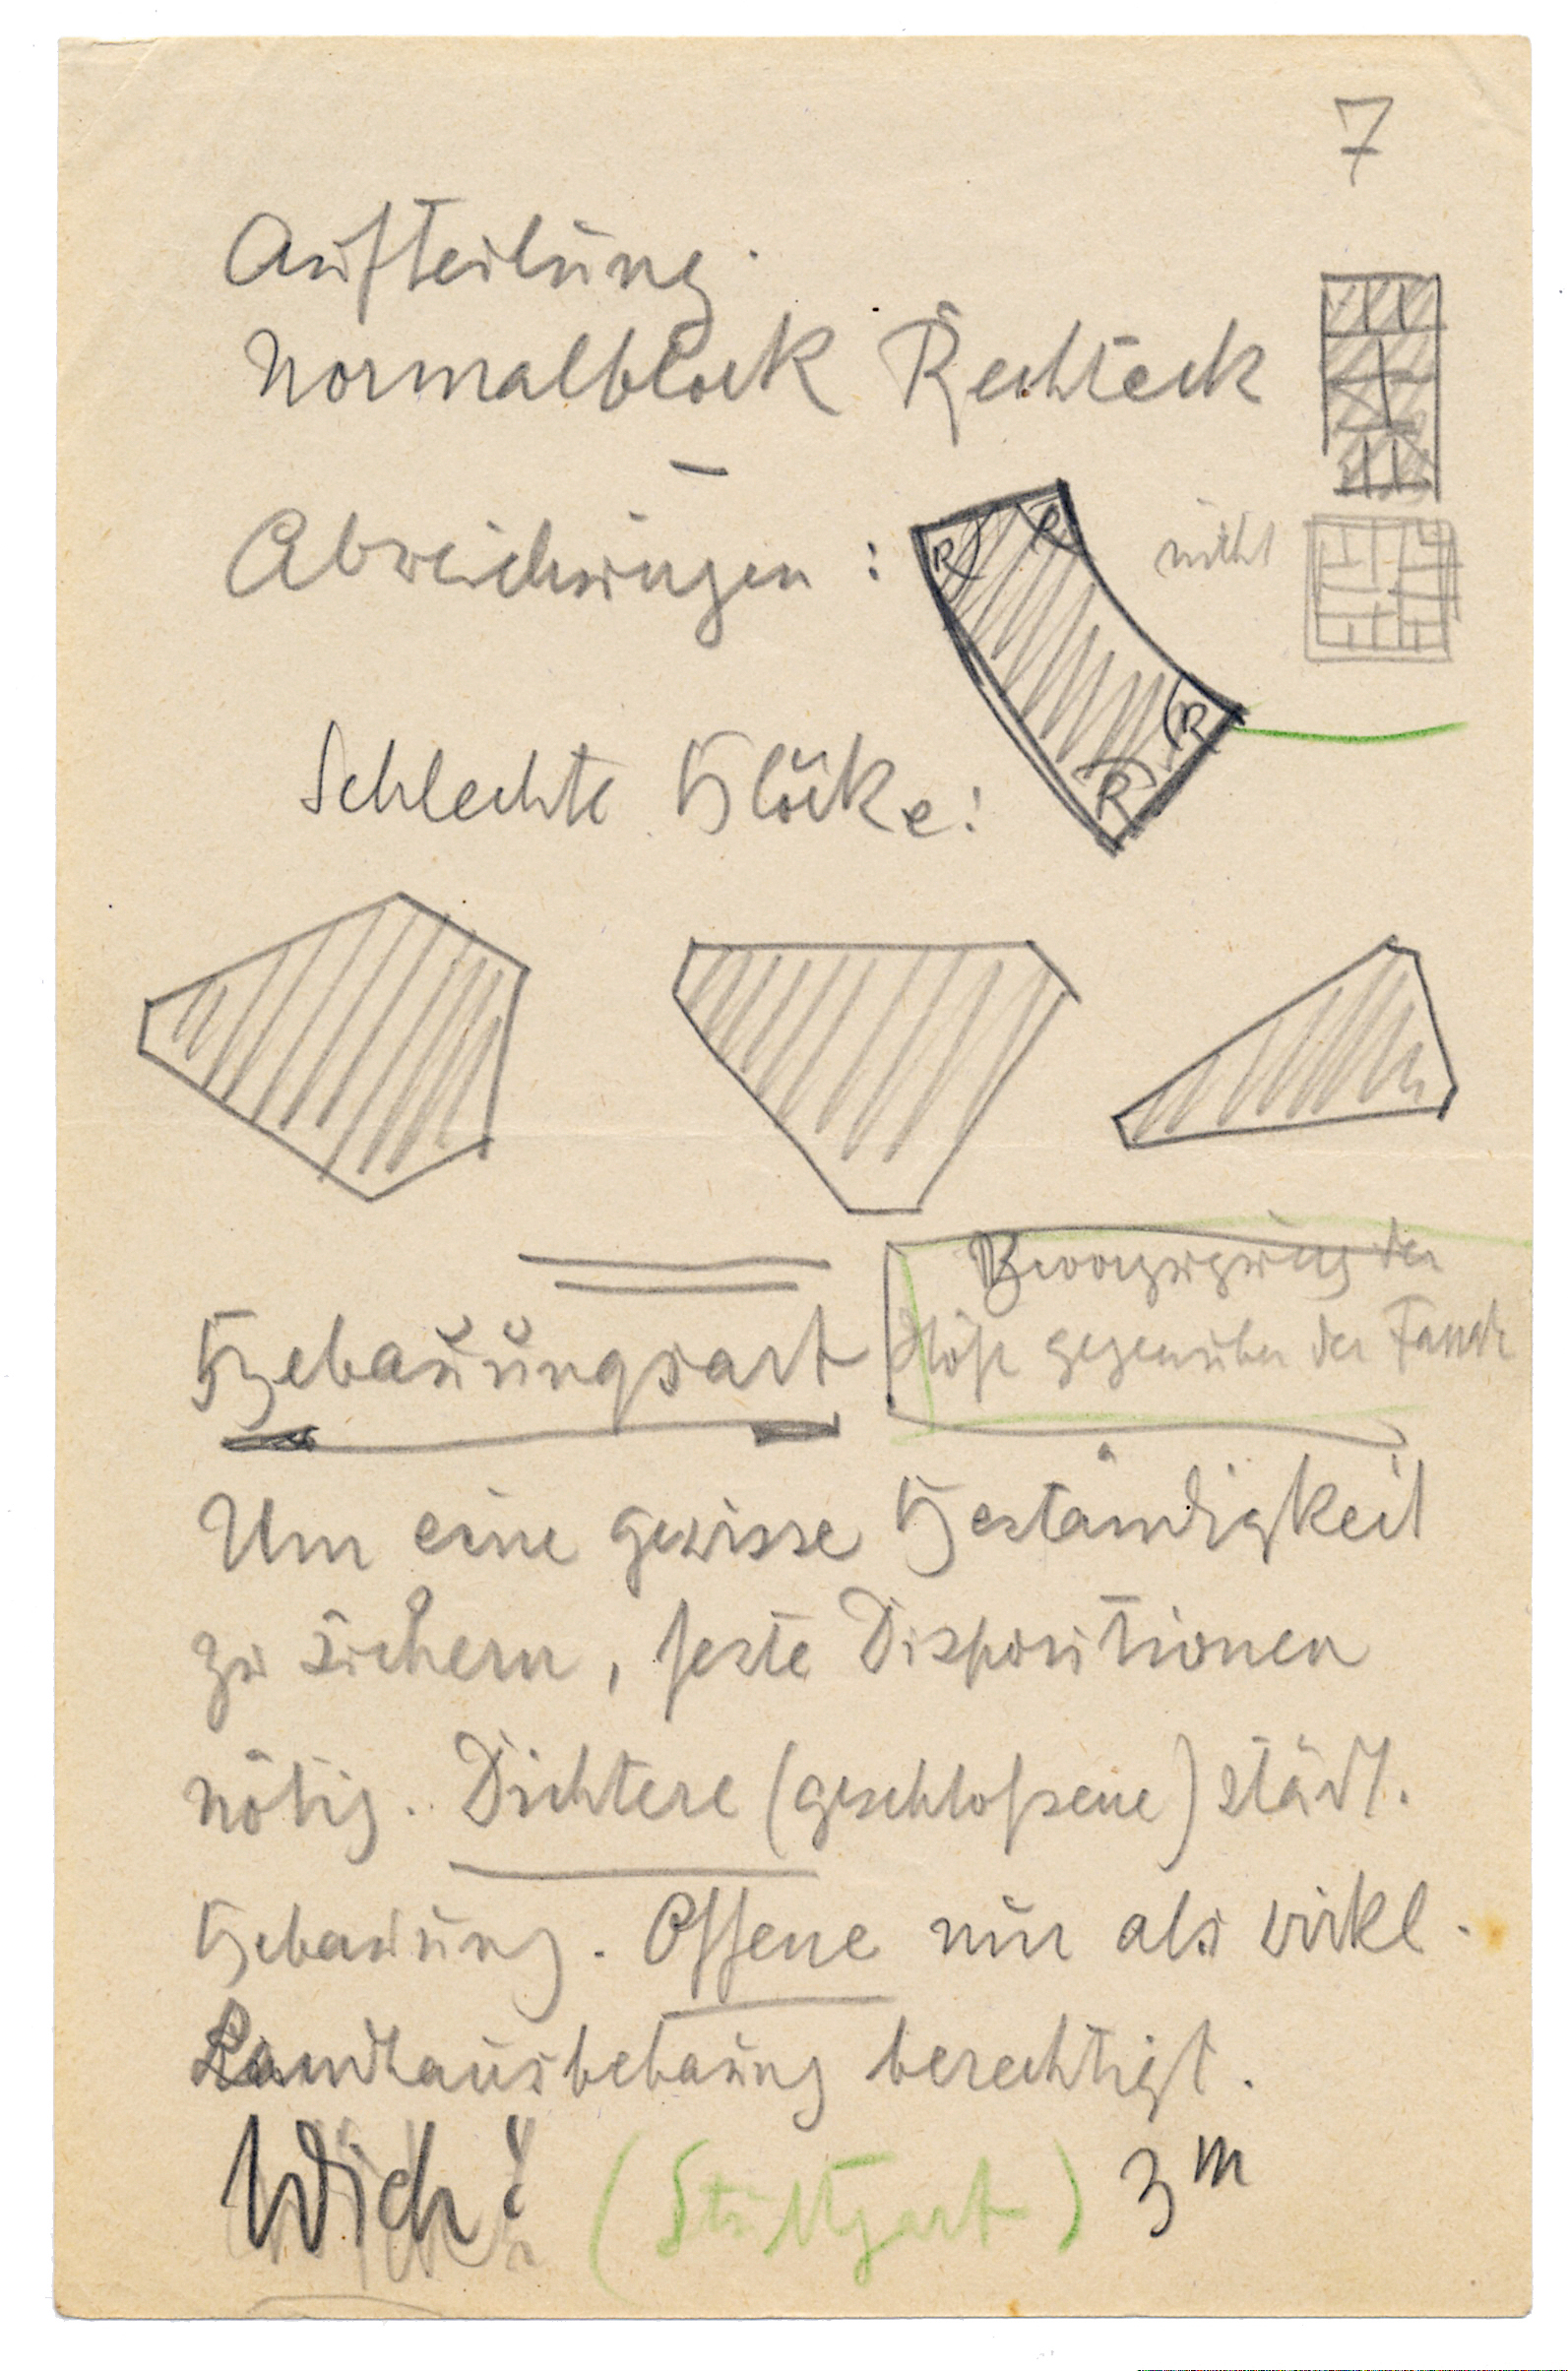 7
Aufteilung.
Normalblock Rechteck
Abweichungen :
nicht
R R
R
R
Schlechte Blöcke:
Bevorzugung der
Höfe gegenüber der
Bebauungsart
Um eine gewisse Beständigkeit
zu sichern, feste Dispositionen
nötig. Dichtere (geschloßene) städt.
Bebauung. Offene nur als wirkl.
Landhausbebauung berechtigt.
Wich!
(Stuttgart) 3m